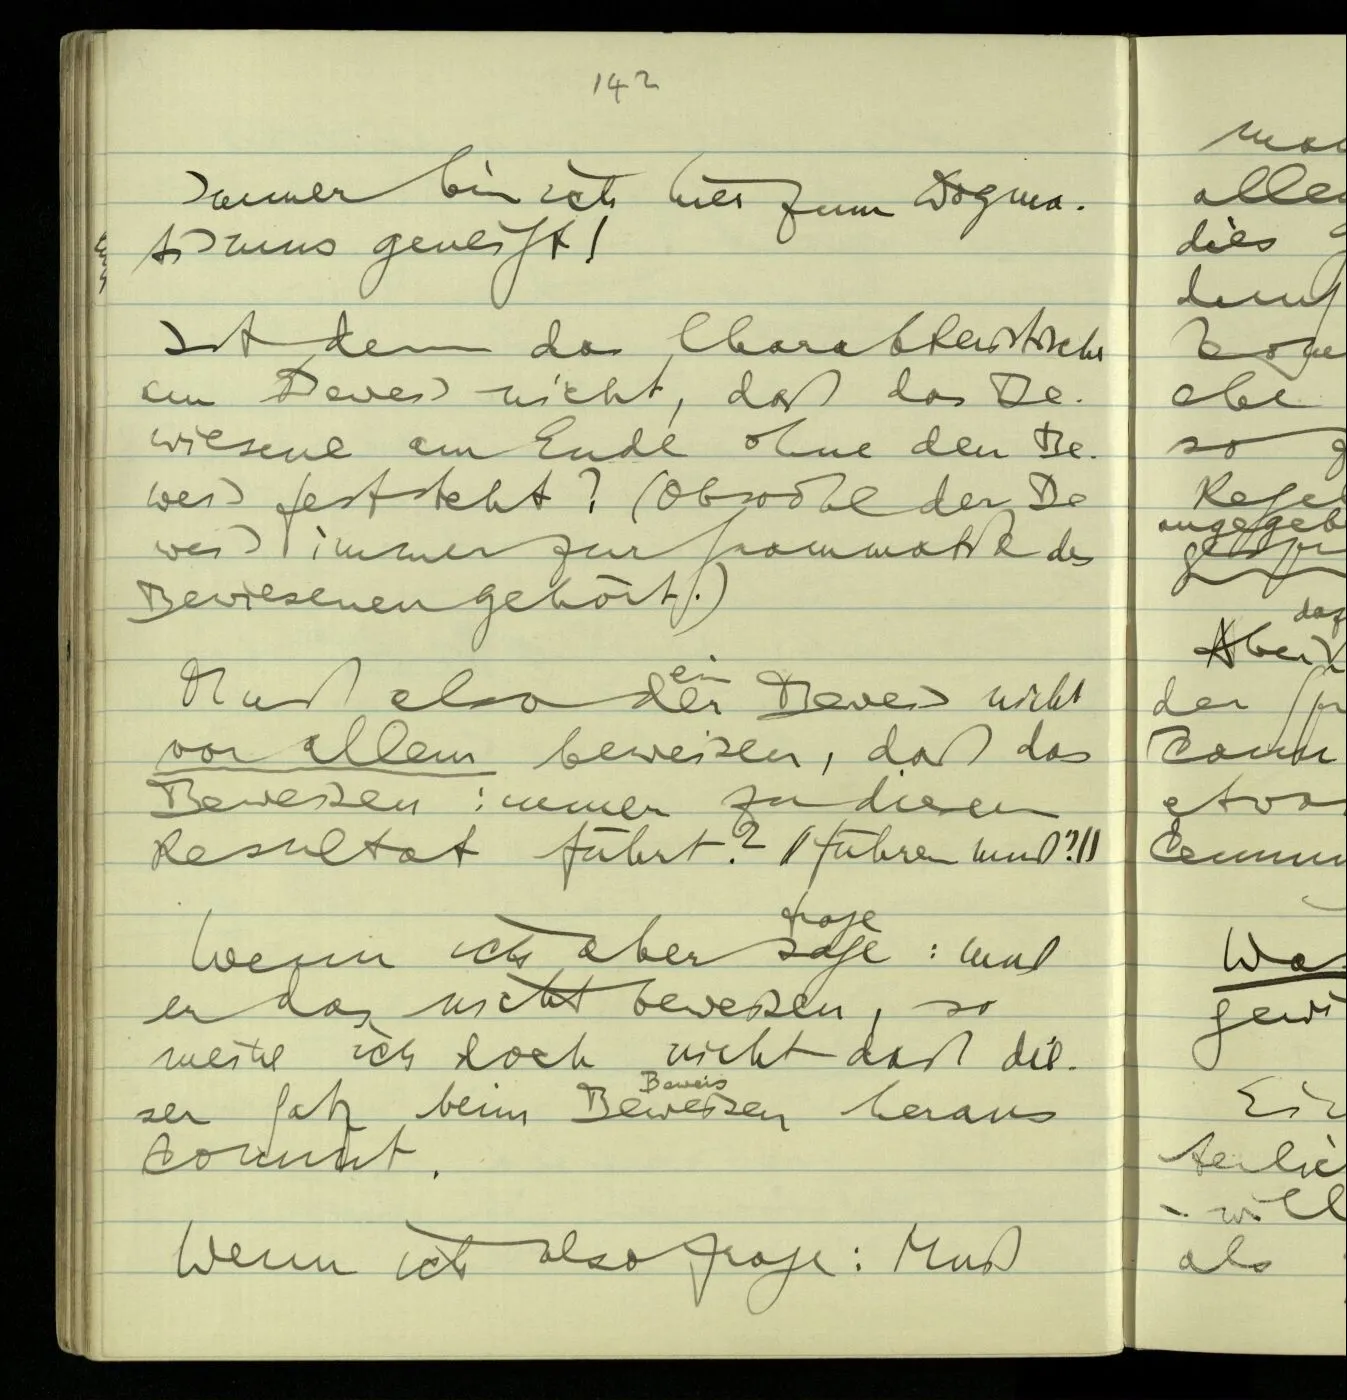 142
Immer bin ich hier zum Dogma-
tismus geneigt!
Ist denn das Charakteristische
am Beweis nicht, daß das Be-
wiesene am Ende ohne den Be-
weis feststeht? (Obwohl der Be
weis immer zur Grammatik des
Bewiesenen gehört.)
ein
Muß also der Beweis nicht
vor allem beweisen, daß das
Beweisen immer zu diesem
Resultat führt? //führen muß?//
frage
Wenn ich aber sage: muß
er das nicht beweisen, so
meine ich doch nicht daß die-
Beweis
ser Satz beim Beweisen heraus
kommt.
Wenn ich also frage: Muß
alle
dies
ehe
so
angegeb
daß
Aber
der
kann
etwa
Wa
gewi
- will
als